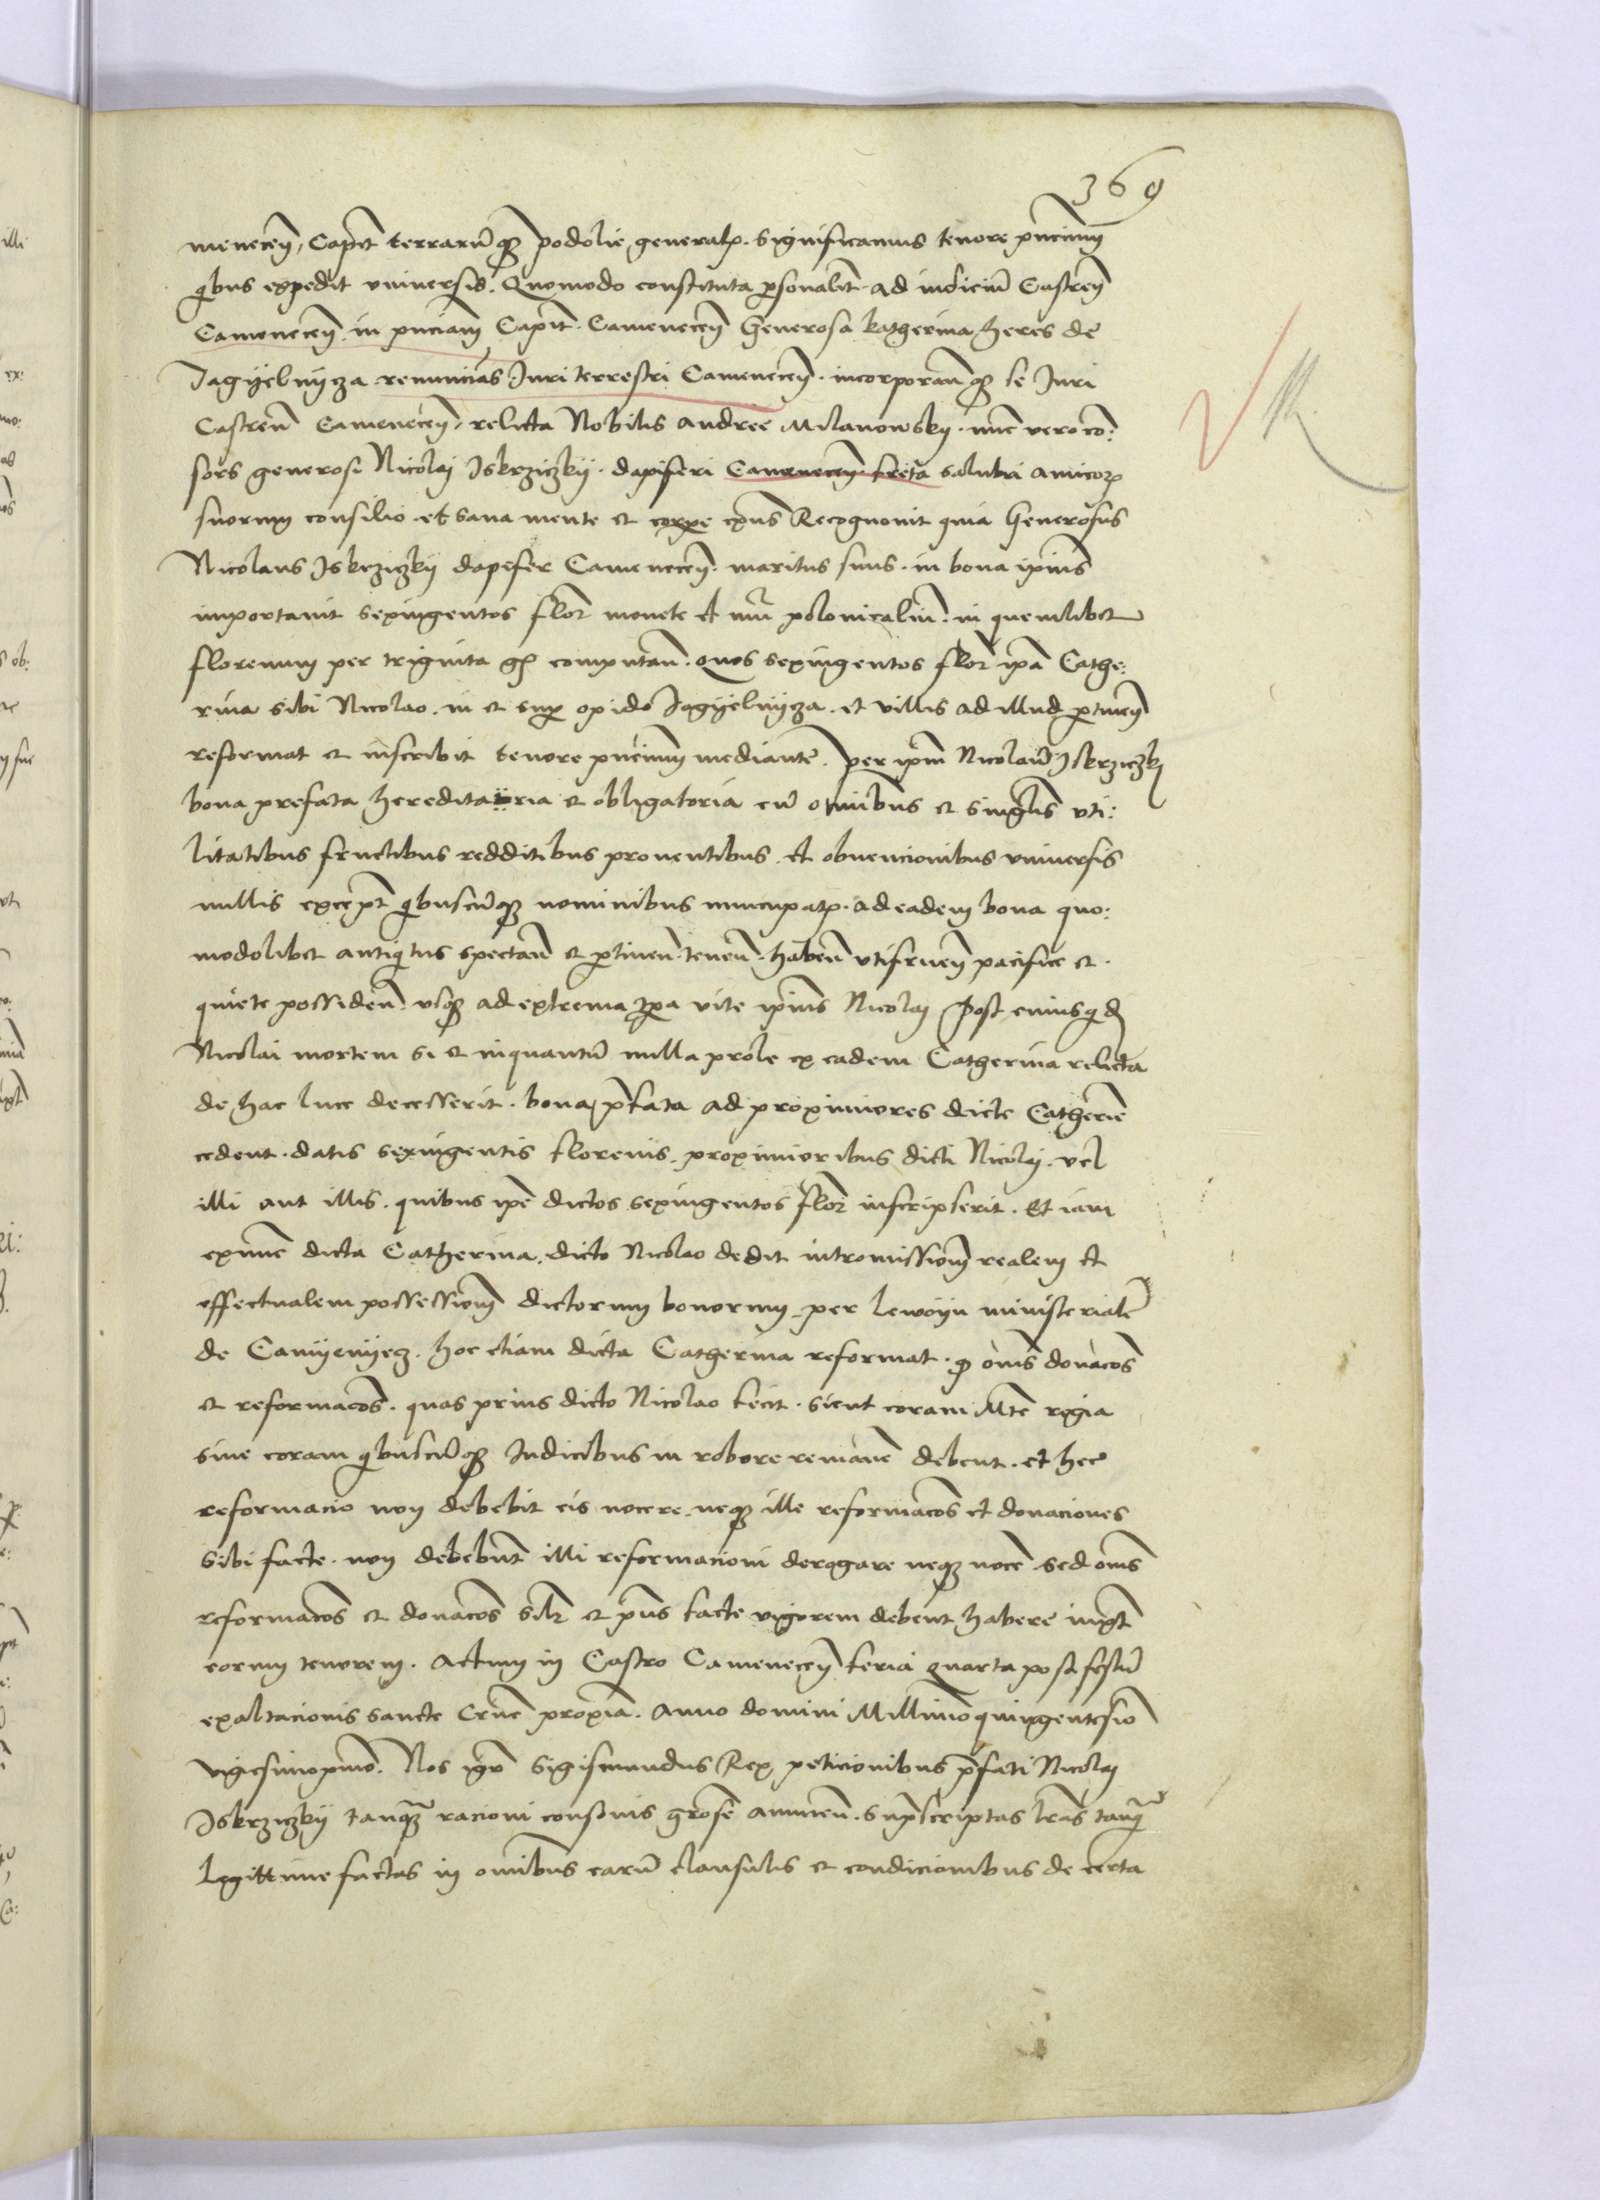 369
menecen̄, Capit̄ terrarū q̄ȝ podolie generalꝭ. Significamus tenore pn̄cium̄
qībus expedit vniuersis. Quomodo constituta ꝑsonalit̄ ad iudiciū Castren̄
Camenecen̄. in pn̄ciam Capit̄. Camenecen̄ Generosa katherina heres de
Jagÿelnÿcza renuncians Juri terrestri Camenecen̄. incorporan̄ q̄ȝ se Juri
Castren̄ Camenecen̄, relicta Nobilis Andree Milanowsky. nūc vero cō:
sors generosi Nicolaj Iskrziczkÿ. dapiferi Camenecen̄. freta salubri amicoꝝ
suorum consilio et sana mente et corpe exn̄s Recognouit quia Generosus
Nicolaus Iskrziczkÿ dapifer Camenecen̄. maritus suus. in bona ipius
importauit sexingentos flor̄ monete et nūi polonicaliū. in quemlibet
florenum per triginta gꝭ computan̄. quos sexingentos flor̄ ipā Cathe:
rina sibi Nicolao. in et suꝑ opido Jagÿelnÿcza. et villis ad illud ꝑtinen̄
reformat et inscribit tenore pn̄cium mediante. per ipm̄ Nicolaū Iskrziczkÿ
bona prefata hereditaria et obligatoria cū omībus et singlis vti:
litatibus fructibus redditibus prouentibus et obuencionibus vniuersis
nullis except̄ qībuscūq̄ȝ nominibus nuncupatꝭ. ad eadem bona quo:
modolibet antiqtus spectan̄ et ꝑtinen̄. tenen̄. haben̄ vtifruen̄ pacifice et.
quiete possiden̄. vsq̄ȝ ad extrema tꝑa vite ipius Nicolaj Post cuiusqd̄
Nicolai mortem si et inquantū nulla prole ex eadem Catherina relicta
de hac luce decesserit. bona, p̄fata ad proximiores dicte Catherine
cedent. datis sexingentis florenis. proximioribus dicti Nicolaj. vel
illi aut illis. quibus ipē dictos sexingentos flor̄ inscripserit. Et iam
exnūc dicta Catherina. dicto Nicolao dedit intromissionem realem et
effectualem possessionem dictorum bonorum per lewoÿn ministerialē
de Camÿenÿecz. hoc etiam dicta Catherina reformat. ꝙ om̄s donacōes
et reformacōes. quas prius dicto Nicolao fecit. sicut coram Mte regia
siue coram qībuscūq̄ȝ Judicibus in robore remane debent. et hec
reformacio non debebit eis nocere. neqȝ ille reformacōes et donaciones
sibi facte. non debebunt illi reformacioni derogare neqȝ noce sed om̄s
reformacōes et donacōes silr̄ et pn̄s facte vigorem debent habere iuxt̄
eorum tenorem. Actum in Castro Camenecen̄ feria quarta post festū
exaltacionis sancte Cruc̄ proxia. Anno domini Millimo quingentesio
vigesimoprimo. Nos igr̄ Sigismundus Rex peticionibus p̄fati Nicolaj
Iskrziczkÿ tanqȝ racioni consonis grose annuen̄. suprascriptas lr̄as tanqȝ
legittime factas in omībus earū clausulis et condicionibus de certa